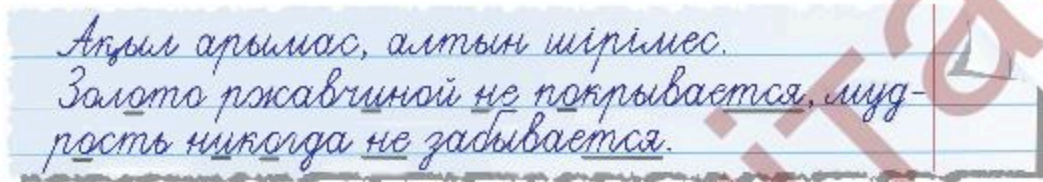 Ақыл арымас, алтын шірімес.
Золото ржавчиной не покрывается, муд-
рость никогда не забывается.